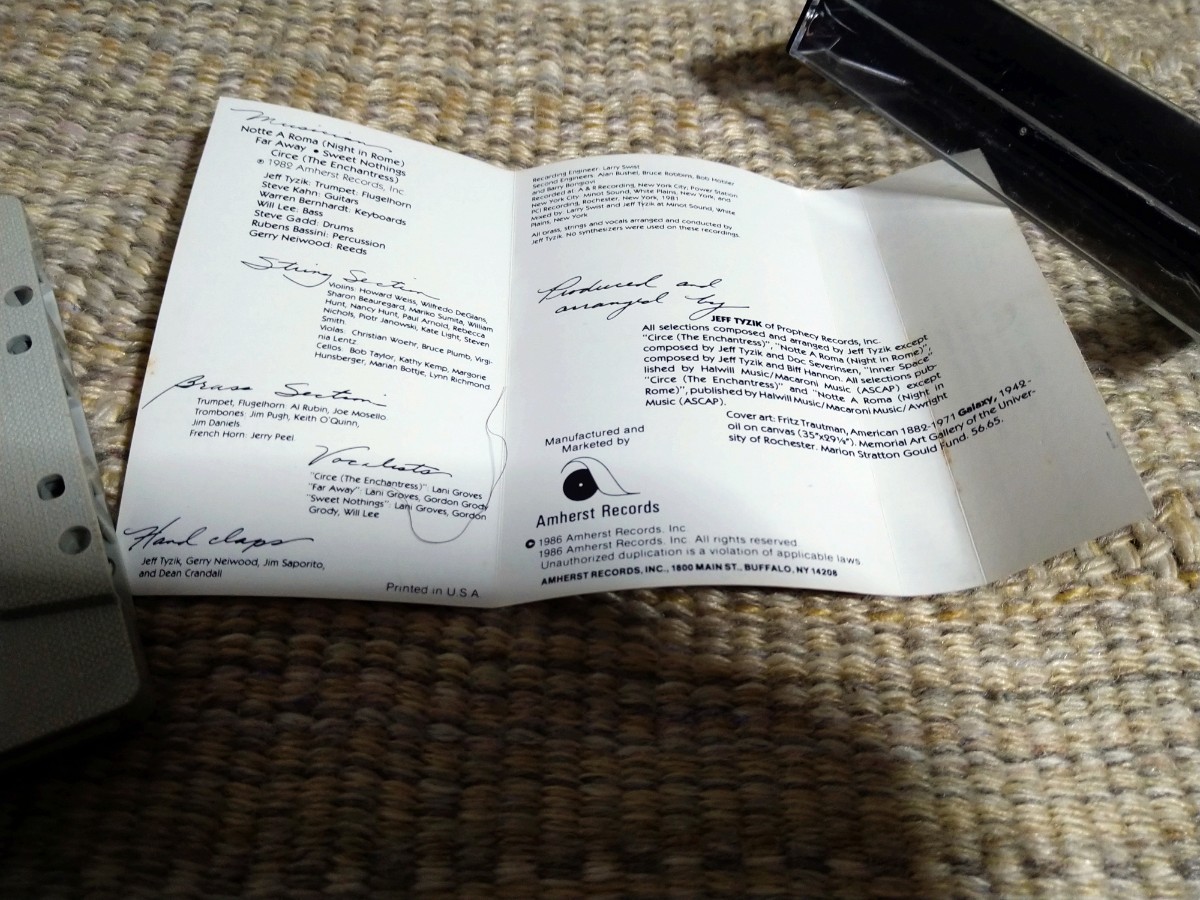 Musicians
Notte A Roma (Night in Rome)
Far Away • Sweet Nothings
Circe (The Enchantress)
℗ 1982 Amherst Records, Inc.
Jeff Tyzik: Trumpet: Flugelhorn
Steve Kahn: Guitars
Warren Bernhardt: Keyboards
Will Lee: Bass
Steve Gadd: Drums
Rubens Bassini: Percussion
Gerry Neiwood: Reeds
String Section
Violins: Howard Weiss, Wilfredo DeGlans,
Sharon Beauregard, Mariko Sumita, William
Hunt, Nancy Hunt, Paul Arnold, Rebecca
Nichols, Piotr Janowski, Kate Light, Steven
Smith.
Violas: Christian Woehr, Bruce Plumb, Virgi-
nia Lentz.
Cellos: Bob Taylor, Kathy Kemp, Margorie
Hunsberger, Marian Bottje, Lynn Richmond.
Brass Section
Trumpet, Flugelhorn: Al Rubin, Joe Mosello.
Trombones: Jim Pugh, Keith O'Quinn,
Jim Daniels.
French Horn: Jerry Peel.
Vocalists
"Circe (The Enchantress)": Lani Groves
"Far Away": Lani Groves, Gordon Grody
"Sweet Nothings": Lani Groves, Gordon
Grody, Will Lee
Hand claps
Jeff Tyzik, Gerry Neiwood, Jim Saporito,
and Dean Crandall
Printed in U.S.A.
Recording Engineer: Larry Swist
Second Engineers: Alan Bushel, Bruce Robbins, Bob Holzler
and Barry Bongiovi
Recorded at: A & R Recording, New York City; Power Station
New York City; Minot Sound, White Plains, New York; and
PCI Recording, Rochester, New York, 1981
Mixed by: Larry Swist and Jeff Tyzik at Minot Sound, White
Plains, New York
All brass, strings and vocals arranged and conducted by
Jeff Tyzik. No synthesizers were used on these recordings.
Produced and
arranged by
JEFF TYZIK of Prophecy Records, Inc.
All selections composed and arranged by Jeff Tyzik except
"Circe (The Enchantress)", "Notte A Roma (Night in Rome)",
composed by Jeff Tyzik and Doc Severinsen, "Inner Space"
composed by Jeff Tyzik and Biff Hannon. All selections pub-
lished by Halwill Music/Macaroni Music (ASCAP) except
"Circe (The Enchantress)" and "Notte A Roma (Night in
Rome)", published by Halwill Music/Macaroni Music/Awright
Music (ASCAP).
Cover art: Fritz Trautman, American 1882-1971 Galaxy, 1942-
oil on canvas (35"x29¼"). Memorial Art Gallery of the Univer-
sity of Rochester. Marion Stratton Gould Fund. 56.65.
Manufactured and
Marketed by
Amherst Records
© 1986 Amherst Records, Inc.
1986 Amherst Records, Inc. All rights reserved
Unauthorized duplication is a violation of applicable laws
AMHERST RECORDS, INC., 1800 MAIN ST., BUFFALO, NY 14208